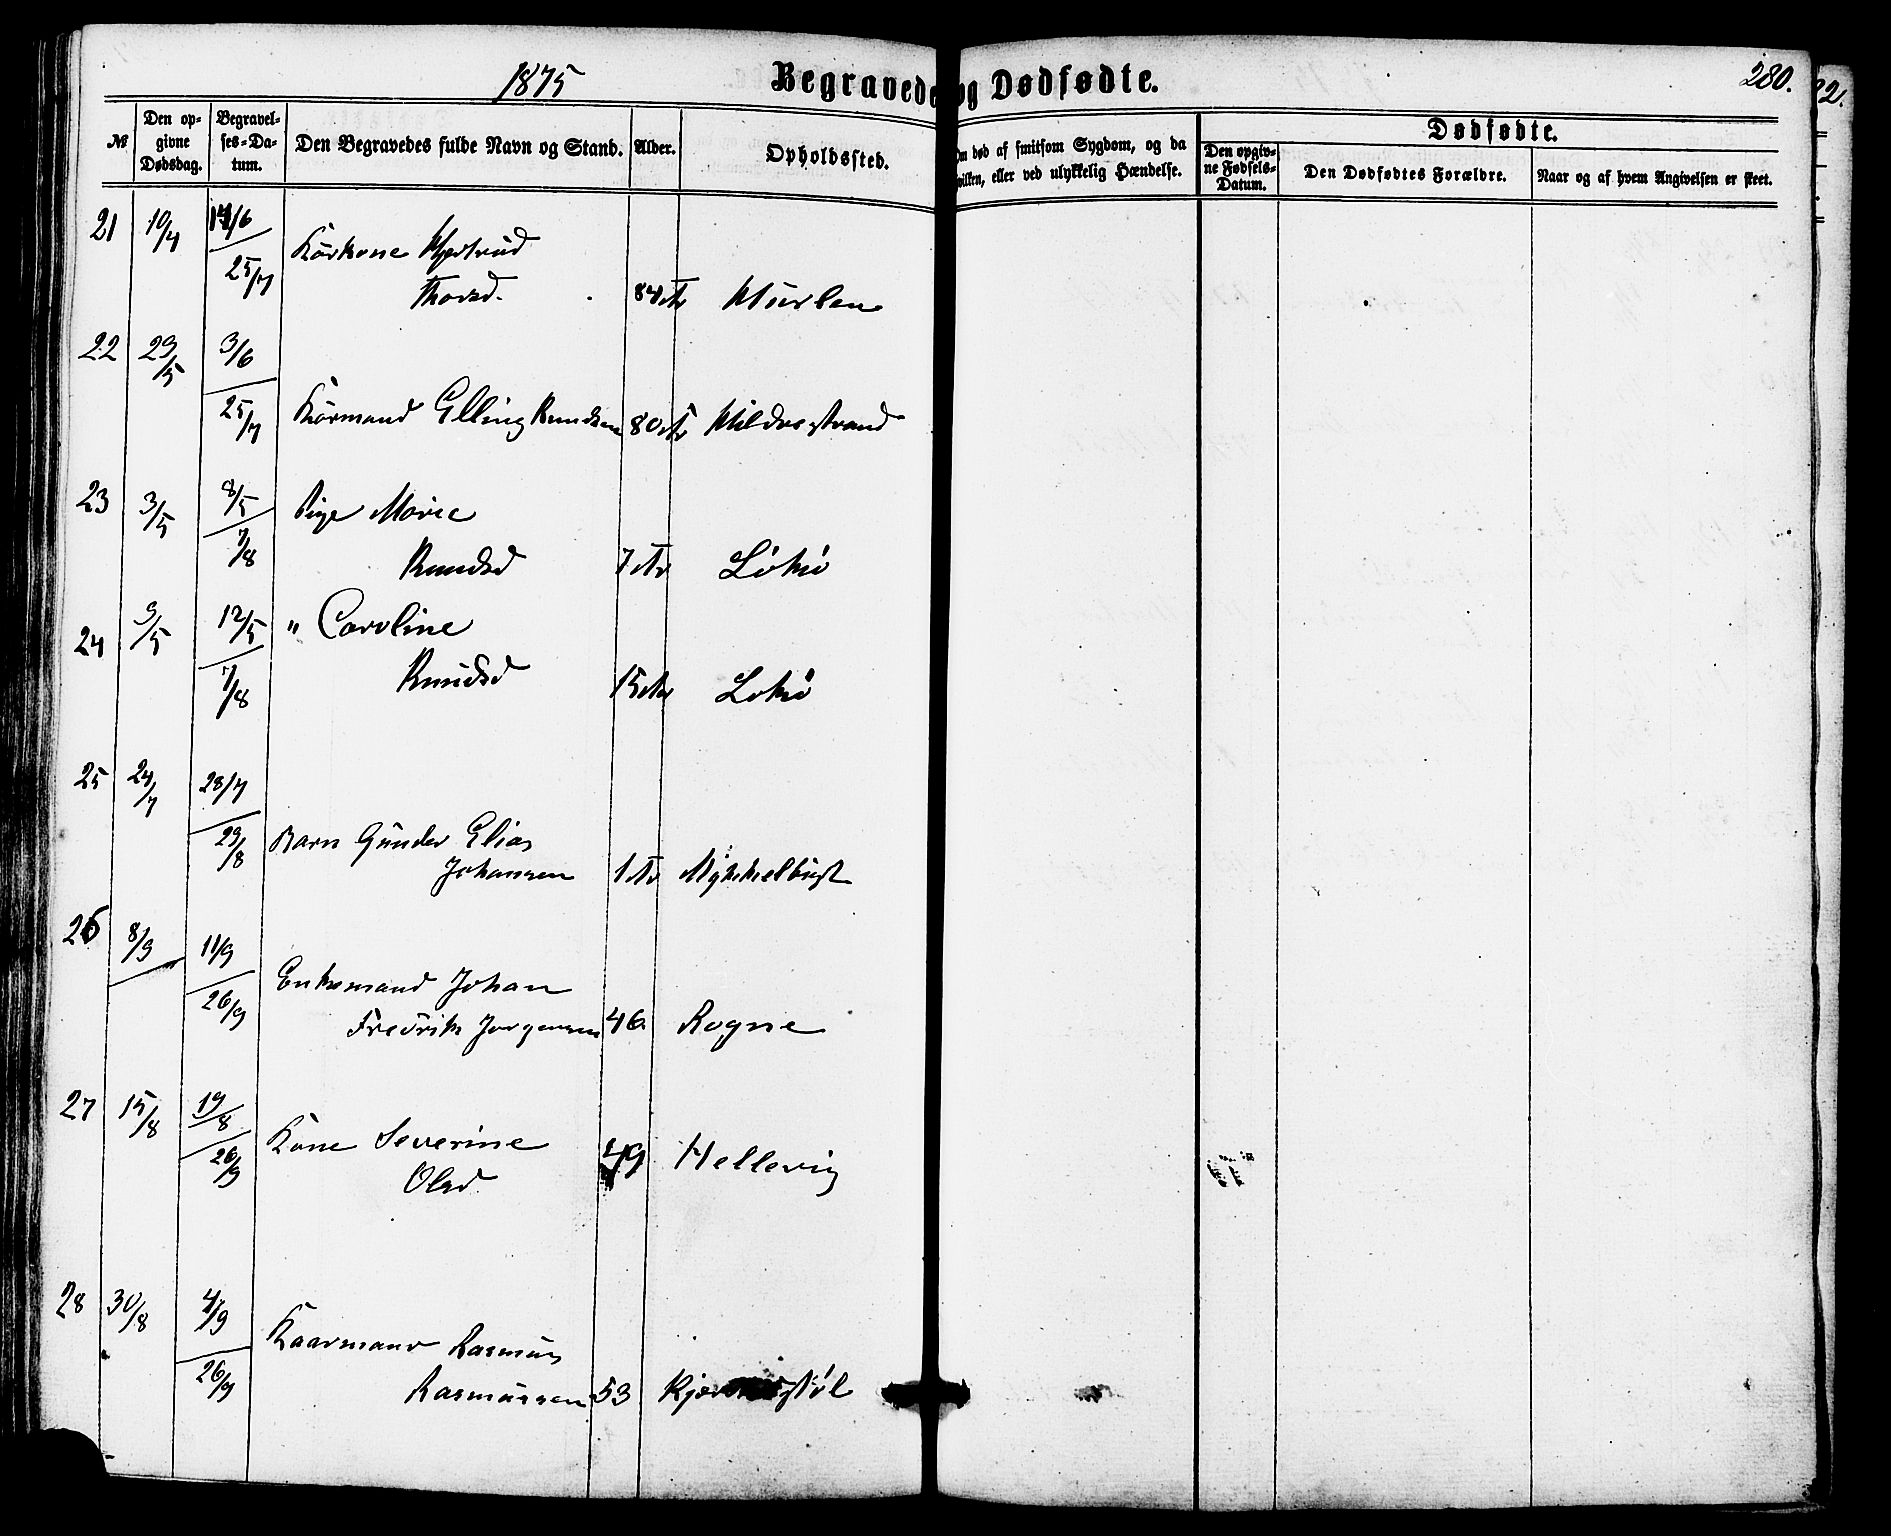 1875
Begravede og Dødfødte.
280.
22.
№
Den opgivne Dødsdag.
Begravelses-Datum.
Den Begravedes fulde Navn og Stand.
Alder.
Opholdssted.
Om død af smitsom Sygdom, og da hvilken, eller ved ulykkelig Hændelse.
Dødfødte.
Den opgivne Fødsels-Datum.
Den Dødfødtes Forældre.
Naar og af hvem Angivelsen er skeet.
21 10/4
25/7
Thorsd. 84
22 29/5 3/6
25/7 Elling Knudsen 80
23 3/5 8/5 Pige Marie
7/8 Knudsd 7 Løkø
24 9/5 12/5 " Caroline
7/8 Knudsd 15 Løkø
25 24/7 28/7
29/8 Barn Gunder Elias
Johansen 1 Myhkelbust
26 8/9 11/9
26/9 Enkemand Johan
Fredrik Jørgensen 46 Rogne
27 15/8 19/8
26/9 Kone Severine
Olsd. 49 Hellevig
28 30/8 4/9
Kaarmand Rasmus
26/9 Rasmussen 53